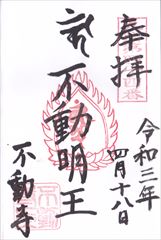 奉拝
令和三年
四月十八日
不動明王
不動寺